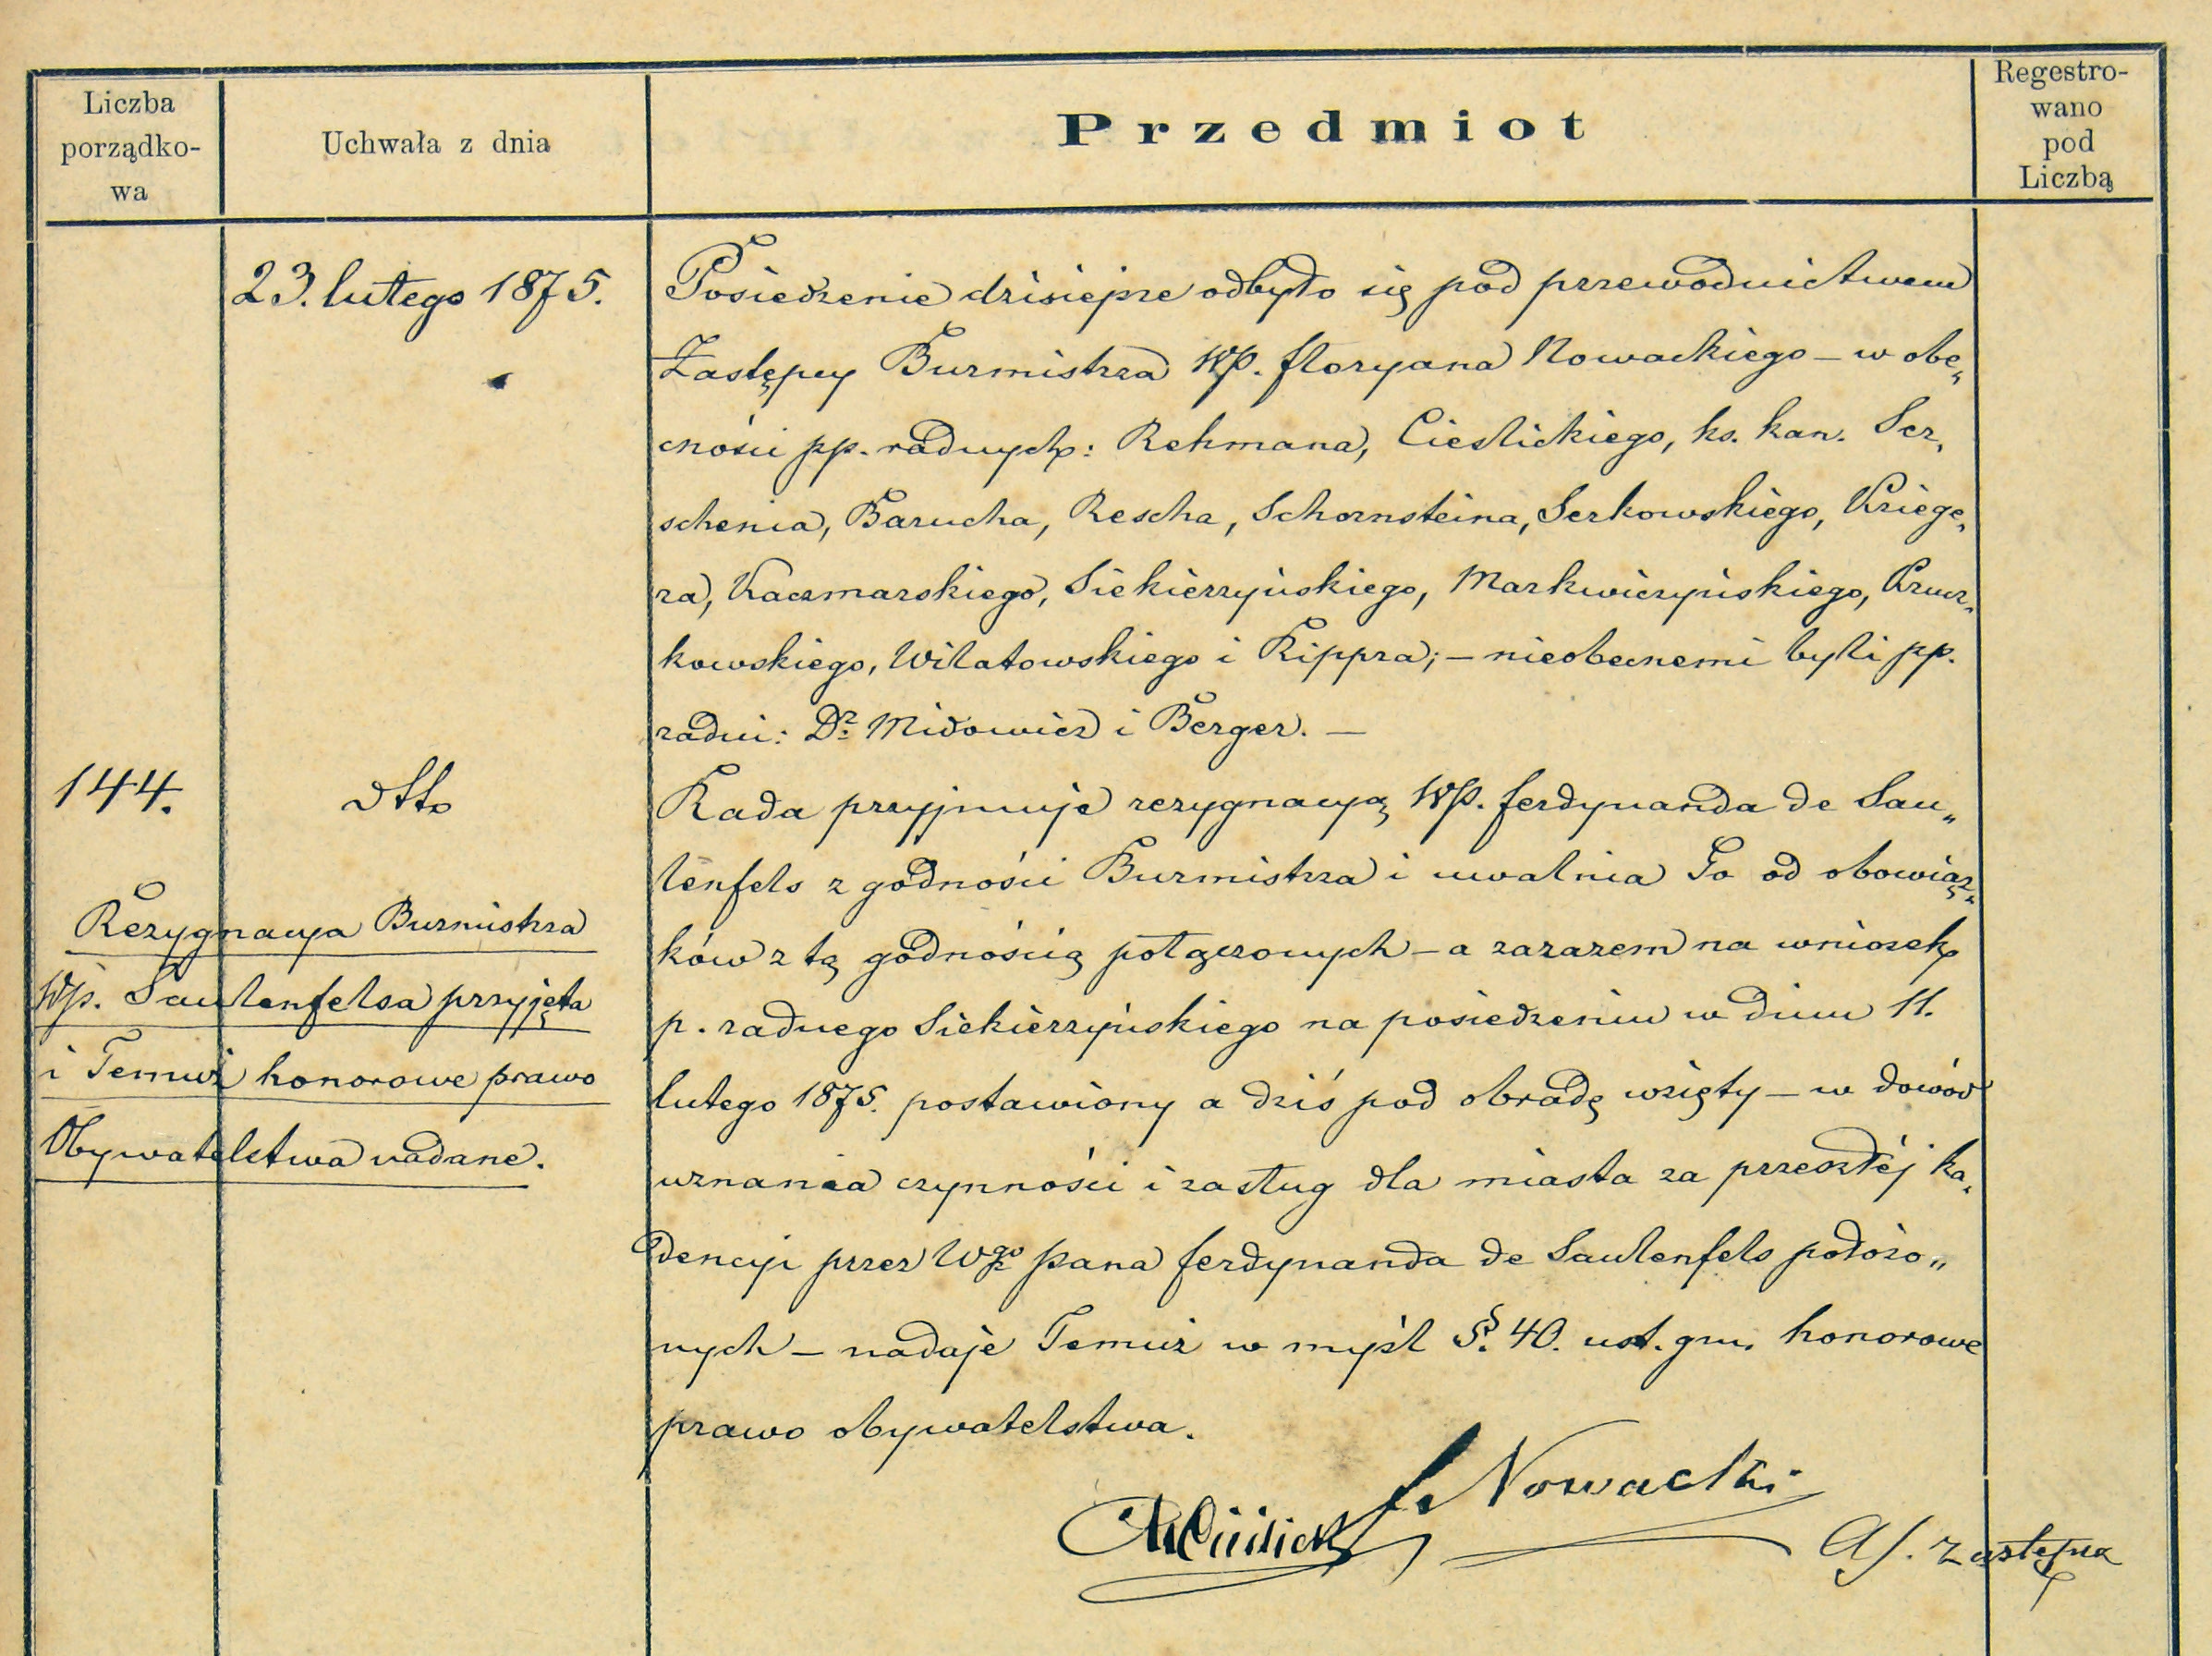 Liczba
porządko-
wa
Uchwała z dnia
Przedmiot
Regestro-
wano
pod
Liczbą
23. lutego 1875.
Posiedzenie dzisiejsze odbyło się pod przewodnictwem
Zastępcy Burmistrza WP. Floryana Nowackiego – w obe„
cności pp. radnych: Rehmana, Cieslickiego, ks. kan. Ser„
schenia, Barucha, Rescha, Schornsteina, Serkowskiego, Kriege„
ra, Kaczmarskiego, Siekierzyńskiego, Markwiczyńskiego, Krucz„
kowskiego, Wilatowskiego i Rippra; – nieobecnemi byli pp.
radni: Dr. Midowicz i Berger. –
144.
dtto
Rada przyjmuje rezygnacyą WP. Ferdynanda de Sau„
lenfels z godności Burmistrza i uwalnia Go od obowiąz„
ków z tą godnością połączonych – a zarazem na wniosek
p. radnego Siekierzyńskiego na posiedzeniu w dniu 11.
lutego 1875. postawiony a dziś pod obradę wzięty – w dowód
uznania czynności i zasług dla miasta za przeszłéj ka„
dencyi przez Wgo Pana Ferdynanda de Saulenfels położo„
nych – nadaje Temuż w myśl §. 40. ust. gm. honorowe
prawo obywatelstwa.
Rezygnacya Burmistrza
Wp. Saulenfelsa przyjęta
i Temuż honorowe prawo
Obywatelstwa nadane.
F. Nowacki
Cieślicki
zastępca